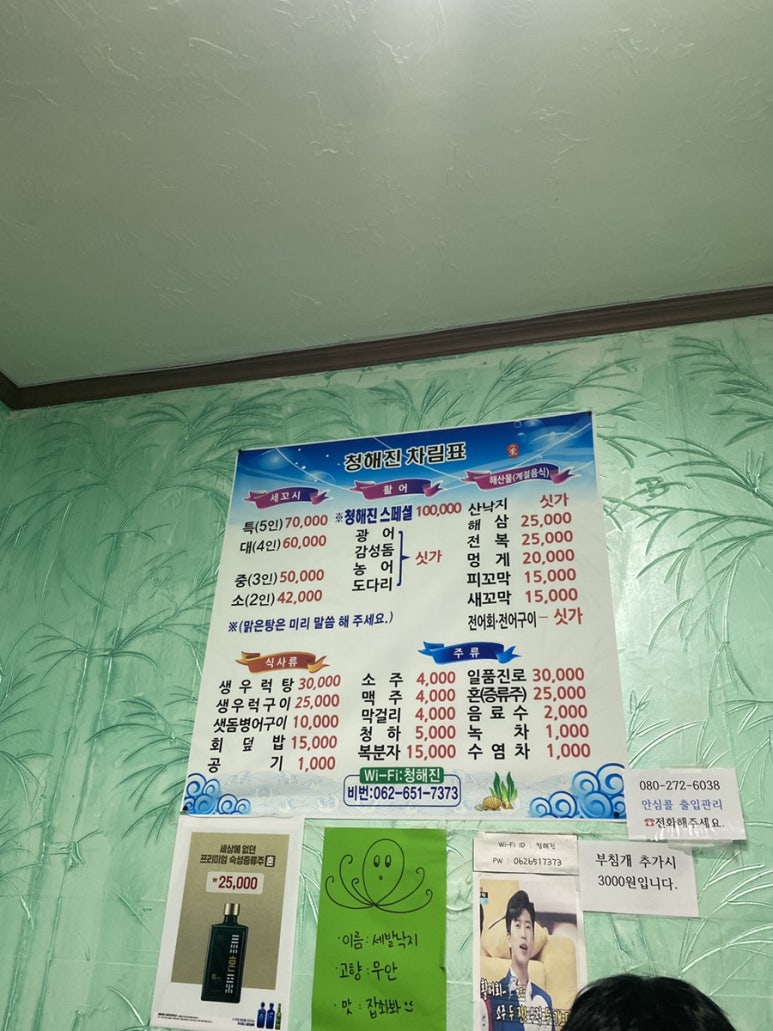 청해진 차림표
세꼬시
특(5인) 70,000
대(4인) 60,000
중(3인) 50,000
소(2인) 42,000
※(맑은탕은 미리 말씀 해 주세요.)
활 어
※청해진 스페셜 100,000
광 어
감성돔
농 어
도다리
싯가
해산물(계절음식)
산낙지 싯가
해 삼 25,000
전 복 25,000
멍 게 20,000
피꼬막 15,000
새꼬막 15,000
전어회·전어구이 – 싯가
식사류
생 우 럭 탕 30,000
생우럭구이 25,000
샛돔병어구이 10,000
회 덮 밥 15,000
공 기 1,000
주 류
소 주 4,000
맥 주 4,000
막걸리 4,000
청 하 5,000
복분자 15,000
일품진로 30,000
혼(증류주) 25,000
음 료 수 2,000
녹 차 1,000
수 염 차 1,000
Wi-Fi:청해진
비번:062-651-7373
080-272-6038
안심콜 출입관리
☎전화해주세요.
세상에 없던
프리미엄 숙성증류주 혼
₩25,000
혼
·이름 : 세발낙지
·고향 : 무안
·맛 : 잡솨봐
Wi-Fi ID : 청해진
PW : 0626517373
부침개 추가시
3000원입니다.